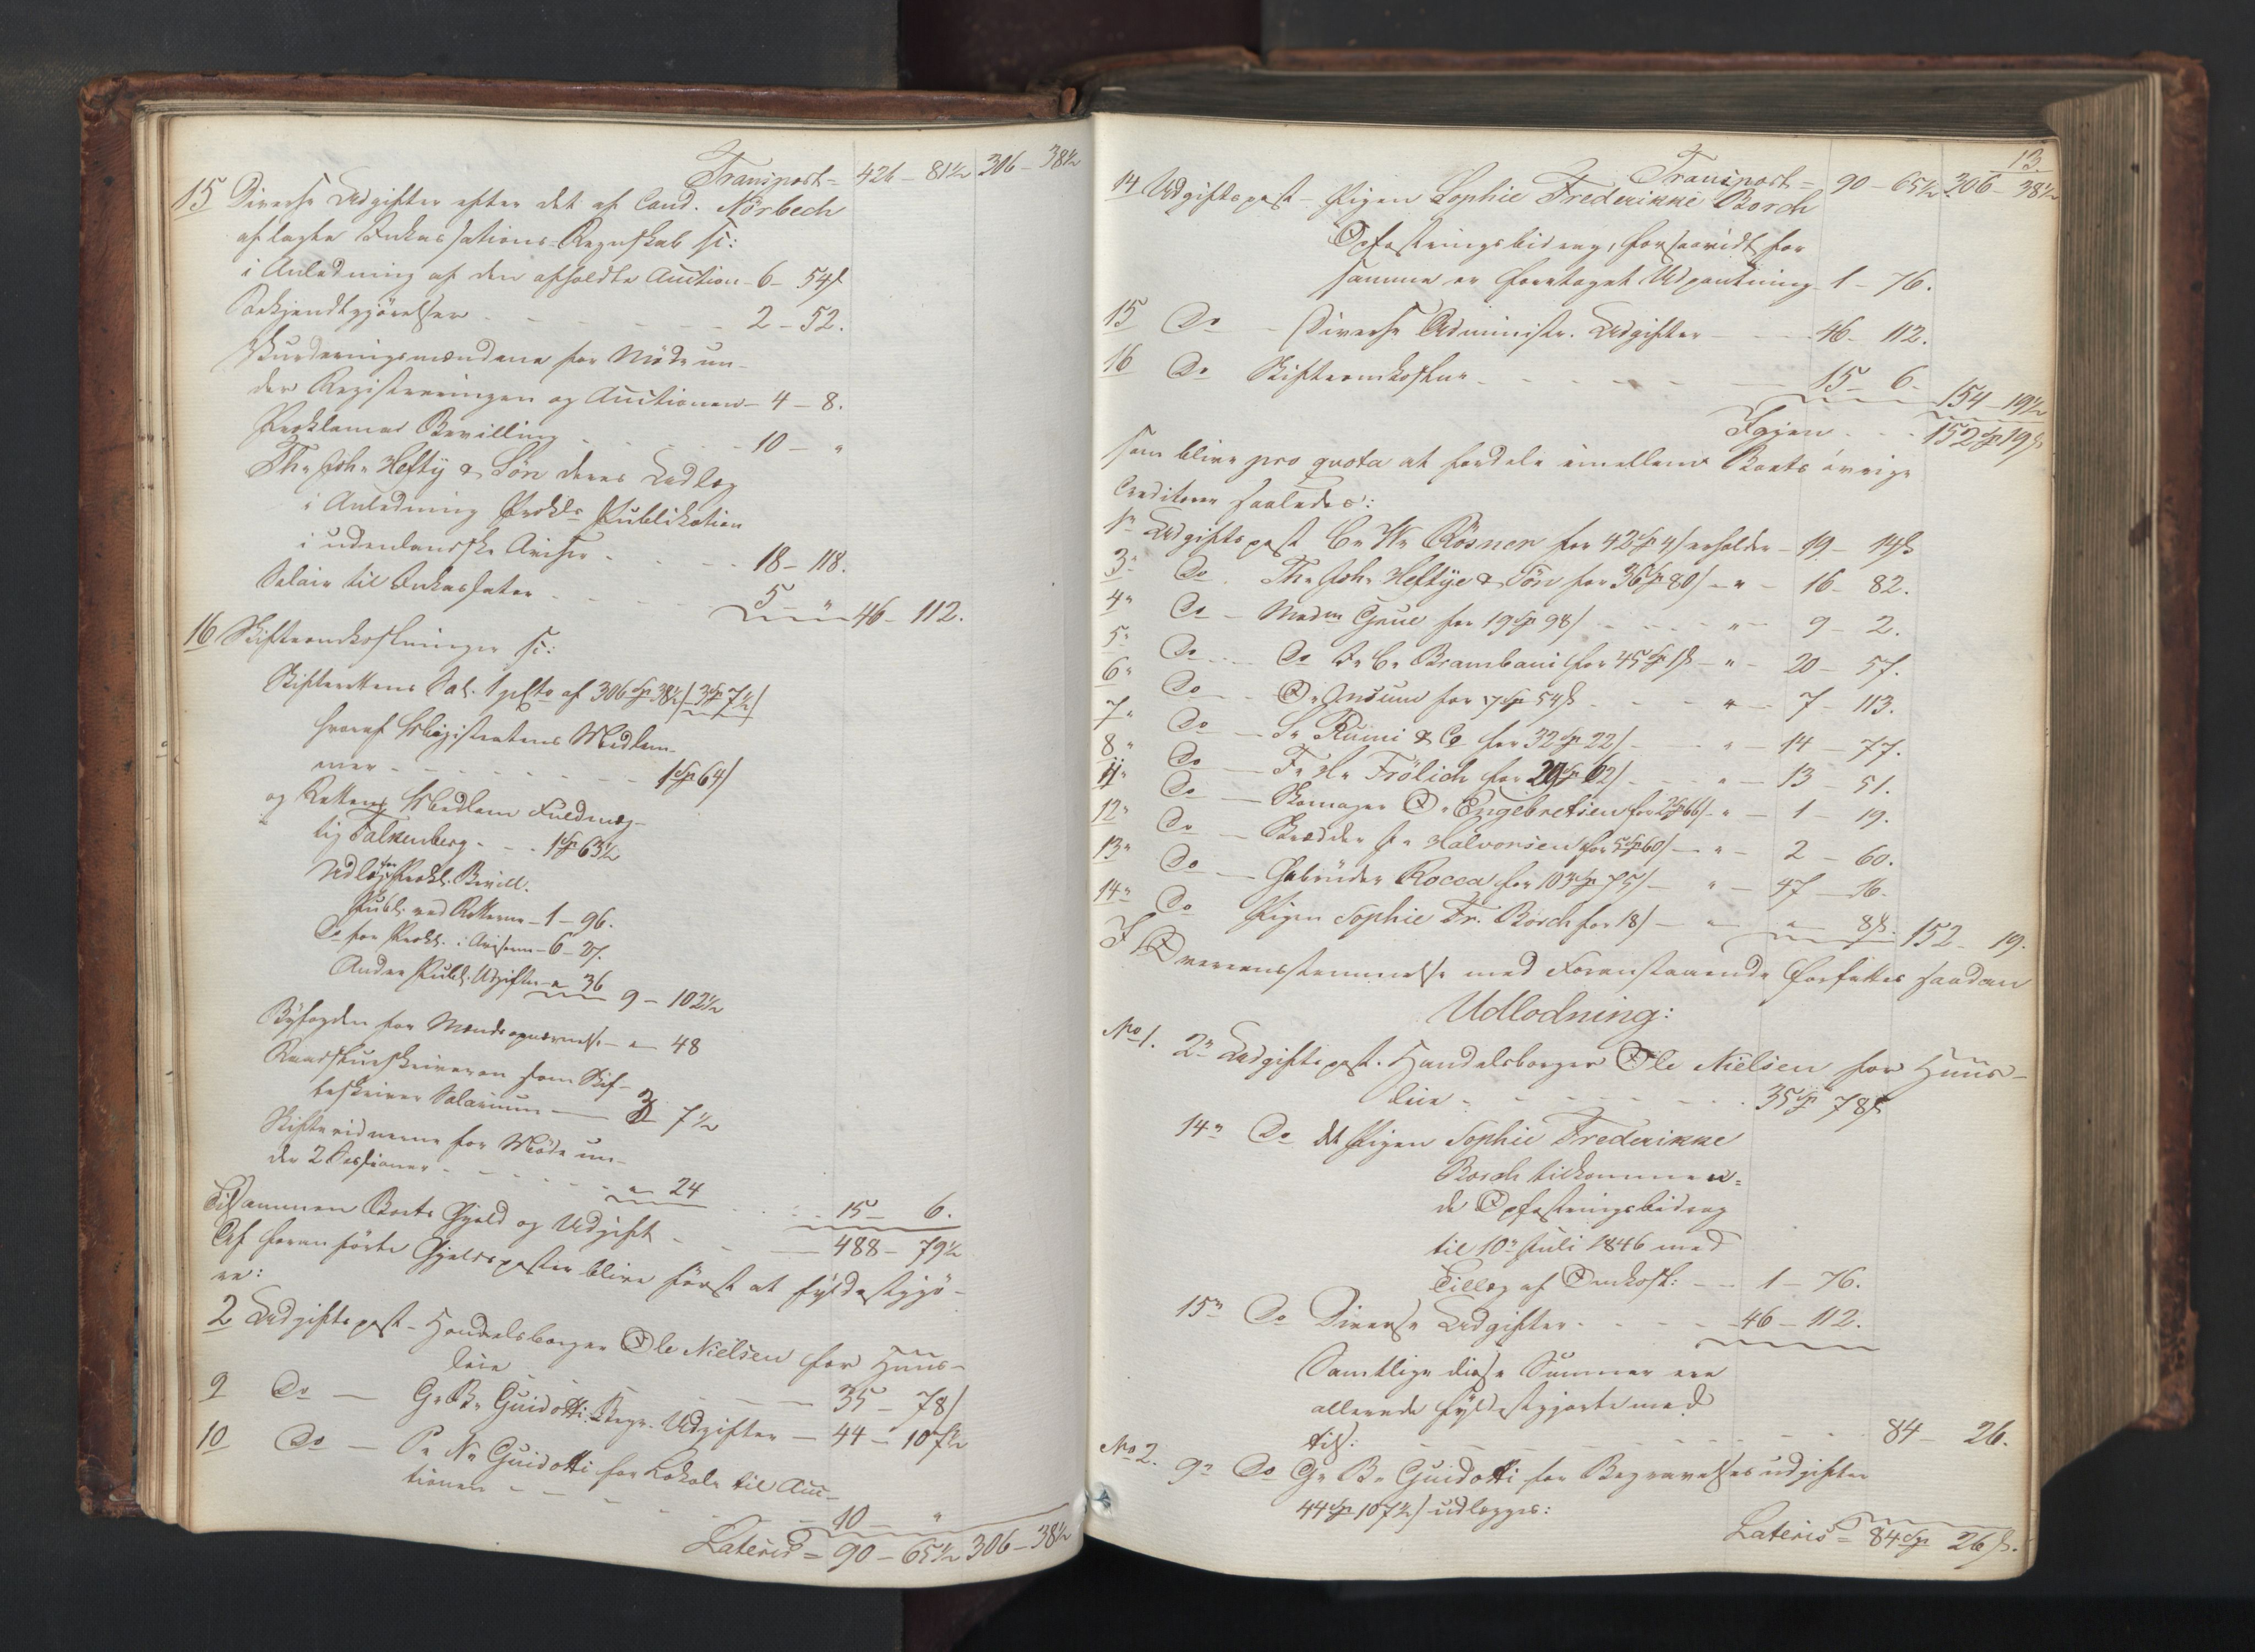 Transport = 426 – 81½ 306 – 38½
15 Diverse Udgifter efter det af Cand. Nörbech
aflagte Inkassations-Regnskab sc:
i Anledning af den afholdte Auction – 6 – 54 ß
Bekjendtgjörelser – – – 2 – 52.
Vurderingsmændene for Möde un-
der Registreringen og Auctionen – 4 – 8.
Proklama Bevilling – – – 10 – "
Th. Joh. Heftÿ & Sön deres Udlæg
i Anledning Prokls Publikation
i udenlandske Aviser – – – 18 – 118.
Salair til Inkassator – – – 5 – " 46 – 112.
16 Skifteomkostninger sc:
Skifterettens Sal. 1 pCto af 306 Sp 38½ ß 3 Sp 7½ ß
hvoraf Magistratens Medlem-
mer – – – 1 Sp 64 ß
og Rettens Medlem Fuldmæg-
tig Falkenberg – – 1 Sp 63½
Udlæg for Prokl. Bevill.
Publ. ved Retterne – 1 – 96.
Do for Prokl. i Aviserne – 6 –
Andre Publ. Udgifter – " 36 9 – 102½
Byfogden for Mændsopnævnelse – " – 48
Raadstueskriveren som Skif-
teskriver Salarium – 3 7½
Skiftevidnerne for Möde un-
der 2 Sessioner – – – " 24 – – 15 – 6.
Tilsammen Boets Gjeld og Udgift – – – 488 – 79½
Af foranförte Gjeldsposter blive först at fyldestgjö-
re:
2 Udgiftspost – Handelsborger Ole Nielsen for Huus-
leie – – – 35 – 78 ß
9 Do – G. B. Guidotti Begr. Udgifter – 44 – 107½
10 Do – P. N. Guidotti for Lokale til Auc-
tionen – – – 10 – "
Lateris = 90 – 65½ 306 – 38½
13.
Transport = 90 – 65½ 306 – 38½
14 Udgiftspost – Pigen Sophie Frederikke Borch
Opfostringsbidrag, forsaavidt for
samme er foretaget Udpantning 1 – 76.
15 Do – Diverse Administr. Udgifter – – 46 – 112.
16 Do Skifteomkostnr – – – 15 – 6 – 154 – 19½
Igjen – – 152 Sp 19 ß
som blive pro quota at fordele imellem Boets övrige
Creditorer saaledes:
1n Udgiftspost C. W. Rösner for 42 Sp 4 ß erholder – 19 – 14 ß
3" Do Th. Joh. Heftÿe & Sön for 36 Sp 80 ß – " – 16 – 82.
4" Do – Madm Grue for 19 Sp 98 ß – – " – 9 – 2.
5" Do – Do J. C. Brambani for 45 Sp 1 ß – " – 20 – 57.
6" Do – O. Onsum for 17 Sp 54 ß – – " – 7 – 113.
7" Do – S. Rumi & Co for 32 Sp 22 ß – – " – 14 – 77.
8" Do – F. H. Frölich for 29 Sp 62 ß – – " – 13 – 51.
11" Do – Skomager O. Engebretsen for 2 Sp 66 ß – " – 1 – 19.
12" Do – Skrædder P. Halvorsen for 5 Sp 60 ß – " – 2 – 60.
13" Do – Gebrüder Rocca for 103 Sp 75 ß – " – 47 – 16.
14" Do Pigen Sophie Fr. Borch for 18 ß – " – " – 8 ß. 152 – 19.
I Overeensstemmelse med Foranstaaende forfattes saadan
Udlodning:
No 1. 2n Udgiftspost. Handelsborger Ole Nielsen for Huus-
leie – – – 35 Sp 78 ß
14n Do det Pigen Sophie Frederikke
Borch tilkommen-
de Opfostringsbidrag
til 10n Juli 1846 med
Tillæg af Omkost: – – 1 – 76.
15n Do Diverse Udgifter – – – 46 – 112.
Samtlige disse Summer ere
allerede fyldestgjorte med
tils: – – – 84 – 26.
No 2. 9n Do G. B. Guidotti for Begravelsesudgifter
44 Sp 107½ ß udlægges:
Lateris = 84 Sp 26 ß.